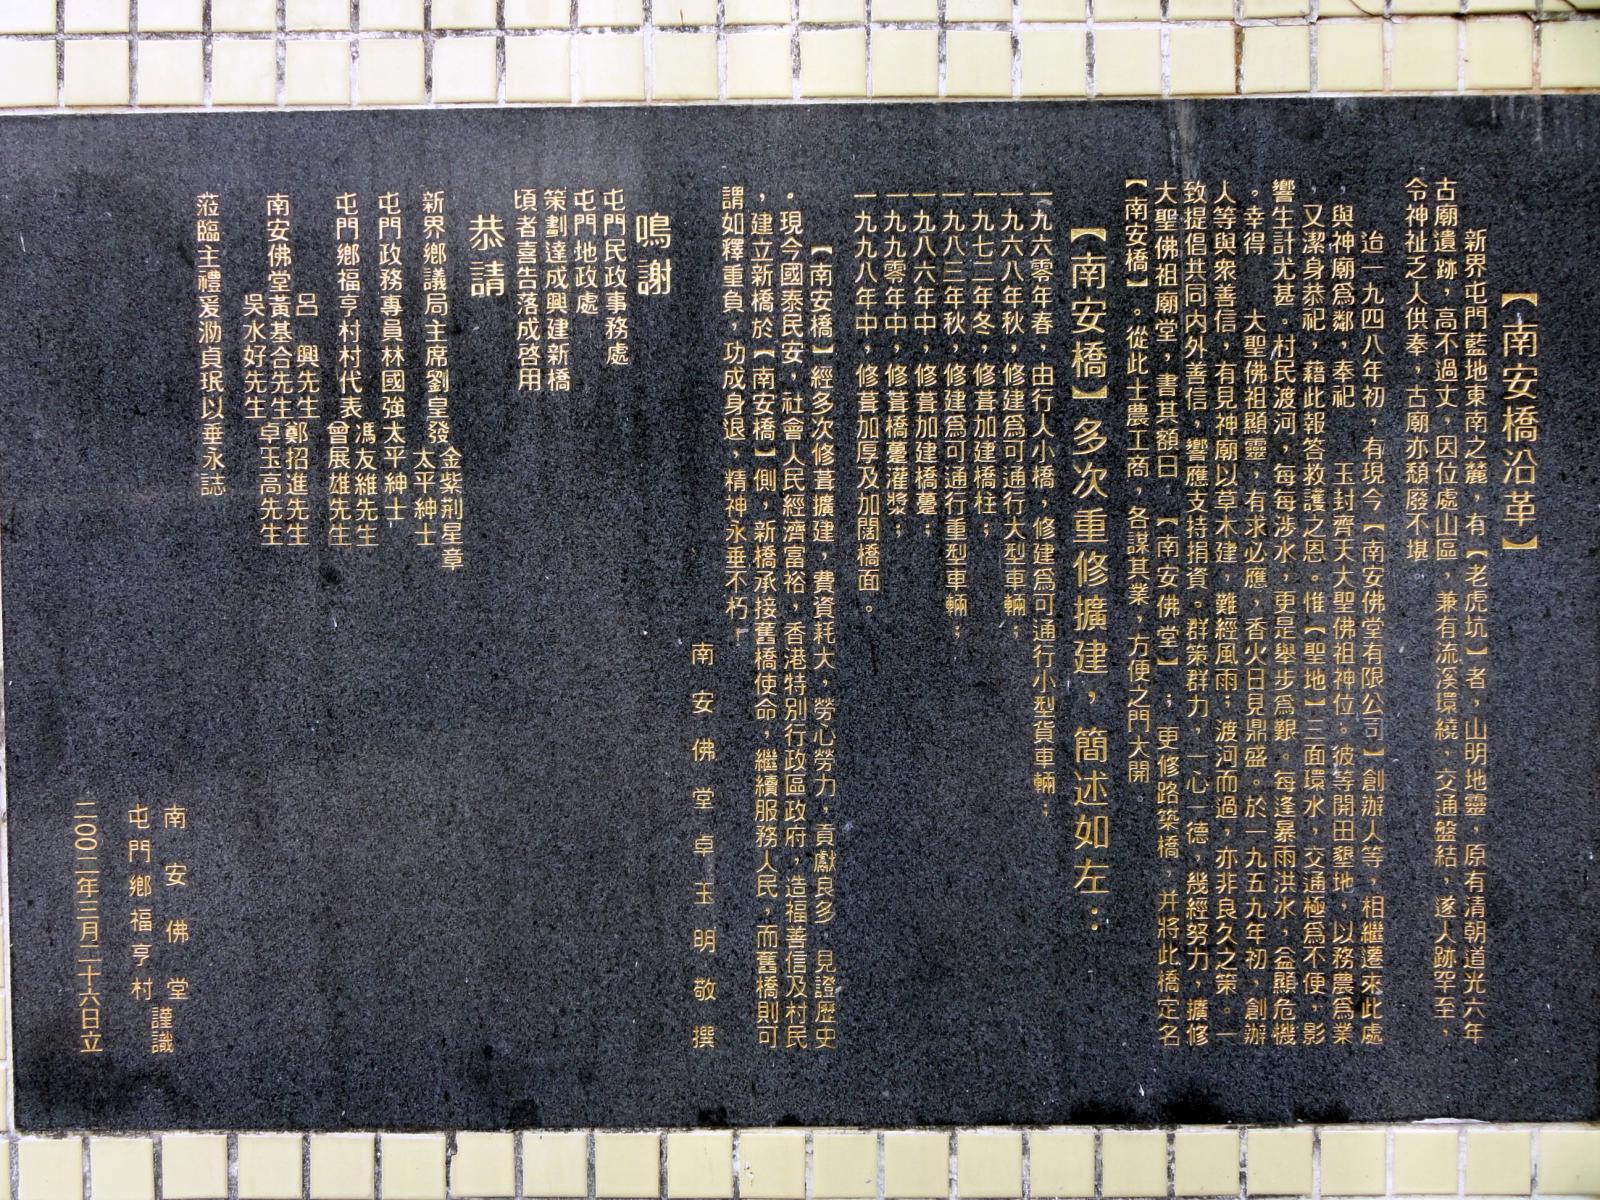 【南安橋沿革】
新界屯門藍地東南之麓，有【老虎坑】者，山明地靈，原有清朝道光六年
古廟遺跡，高不過丈，因位處山區，兼有流溪環繞，交通盤結，遂人跡罕至，
令神祉乏人供奉，古廟亦頹廢不堪
迨一九四八年初，有現今【南安佛堂有限公司】創辦人等，相繼遷來此處
，與神廟為鄰，奉祀　玉封齊天大聖佛祖神位。彼等開田墾地，以務農為業
，又潔身恭祀，藉此報答救護之恩。惟【聖地】三面環水，交通極為不便，影
響生計尤甚。村民渡河，每每涉水，更是舉步為艱。每逢暴雨洪水，益顯危機
。幸得　大聖佛祖顯靈，有求必應，香火日見鼎盛。於一九五九年初，創辦
人等與衆善信，有見神廟以草木建，難經風雨；渡河而過，亦非良久之策。一
致提倡共同內外善信，響應支持捐資。群策群力，一心一德，幾經努力，擴修
大聖佛祖廟堂，書其額曰【南安佛堂】；更修路築橋，并將此橋定名
【南安橋】。從此士農工商，各謀其業，方便之門大開。
【南安橋】多次重修擴建，簡述如左：
一九六零年春，由行人小橋，修建為可通行小型貨車輛；
一九六八年秋，修建為可通行大型車輛；
一九七二年冬，修葺加建橋柱；
一九八三年秋，修建為可通行重型車輛；
一九八六年中，修葺加建橋躉；
一九九零年中，修葺橋躉灌漿；
一九九八年中，修葺加厚及加闊橋面。
【南安橋】經多次修葺擴建，費資耗大，勞心勞力，貢獻良多，見證歷史
。現今國泰民安，社會人民經濟富裕，香港特別行政區政府，造福善信及村民
，建立新橋於【南安橋】側，新橋承接舊橋使命，繼續服務人民，而舊橋則可
謂如釋重負，功成身退，精神永垂不朽！
南安佛堂卓玉明敬撰
鳴謝
屯門民政事務處
屯門地政處
策劃達成興建新橋
頃者喜告落成啓用
恭請
新界鄉議局主席劉皇發 金紫荆星章 太平紳士
屯門政務專員林國強太平紳士
屯門鄉福亨村村代表 馮友維先生 曾展雄先生
南安佛堂 呂　興先生 黃基合先生 吳水好先生 鄭招進先生 卓玉高先生
蒞臨主禮爰泐貞珉以垂永誌
南安佛堂
屯門鄉福亨村 謹識
二00二年三月二十六日立